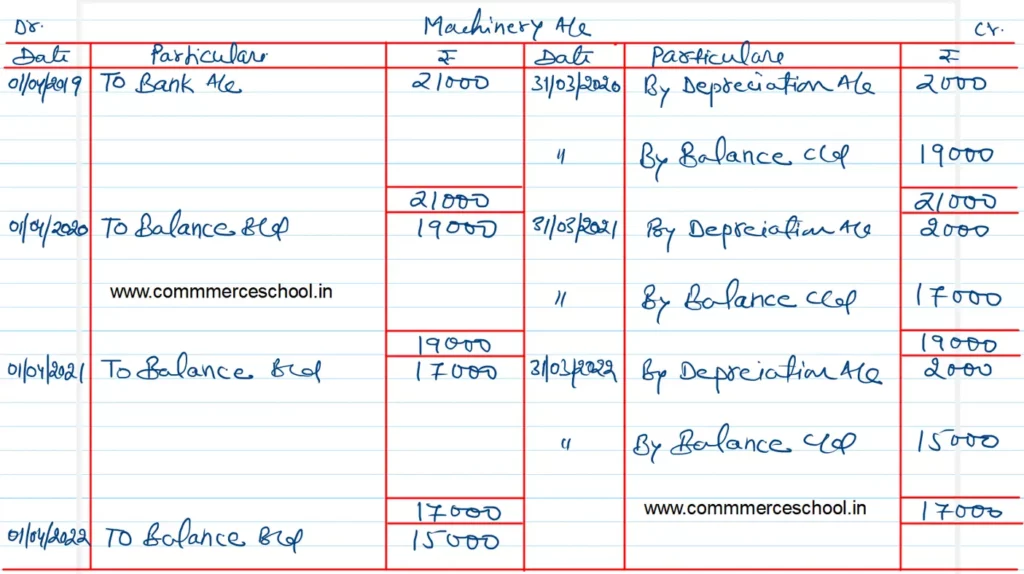 Dr. Machinery A/c Cr.
Date Particulars ₹ Date Particulars ₹
01/04/2019 To Bank A/c 21000 31/03/2020 By Depreciation A/c 2000
" By Balance C/d 19000
21000 21000
01/04/2020 To Balance B/d 19000 31/03/2021 By Depreciation A/c 2000
www.commmerceschool.in " By Balance C/d 17000
19000 19000
01/04/2021 To Balance B/d 17000 31/03/2022 By Depreciation A/c 2000
" By Balance C/d 15000
17000 www.commmerceschool.in 17000
01/04/2022 To Balance B/d 15000